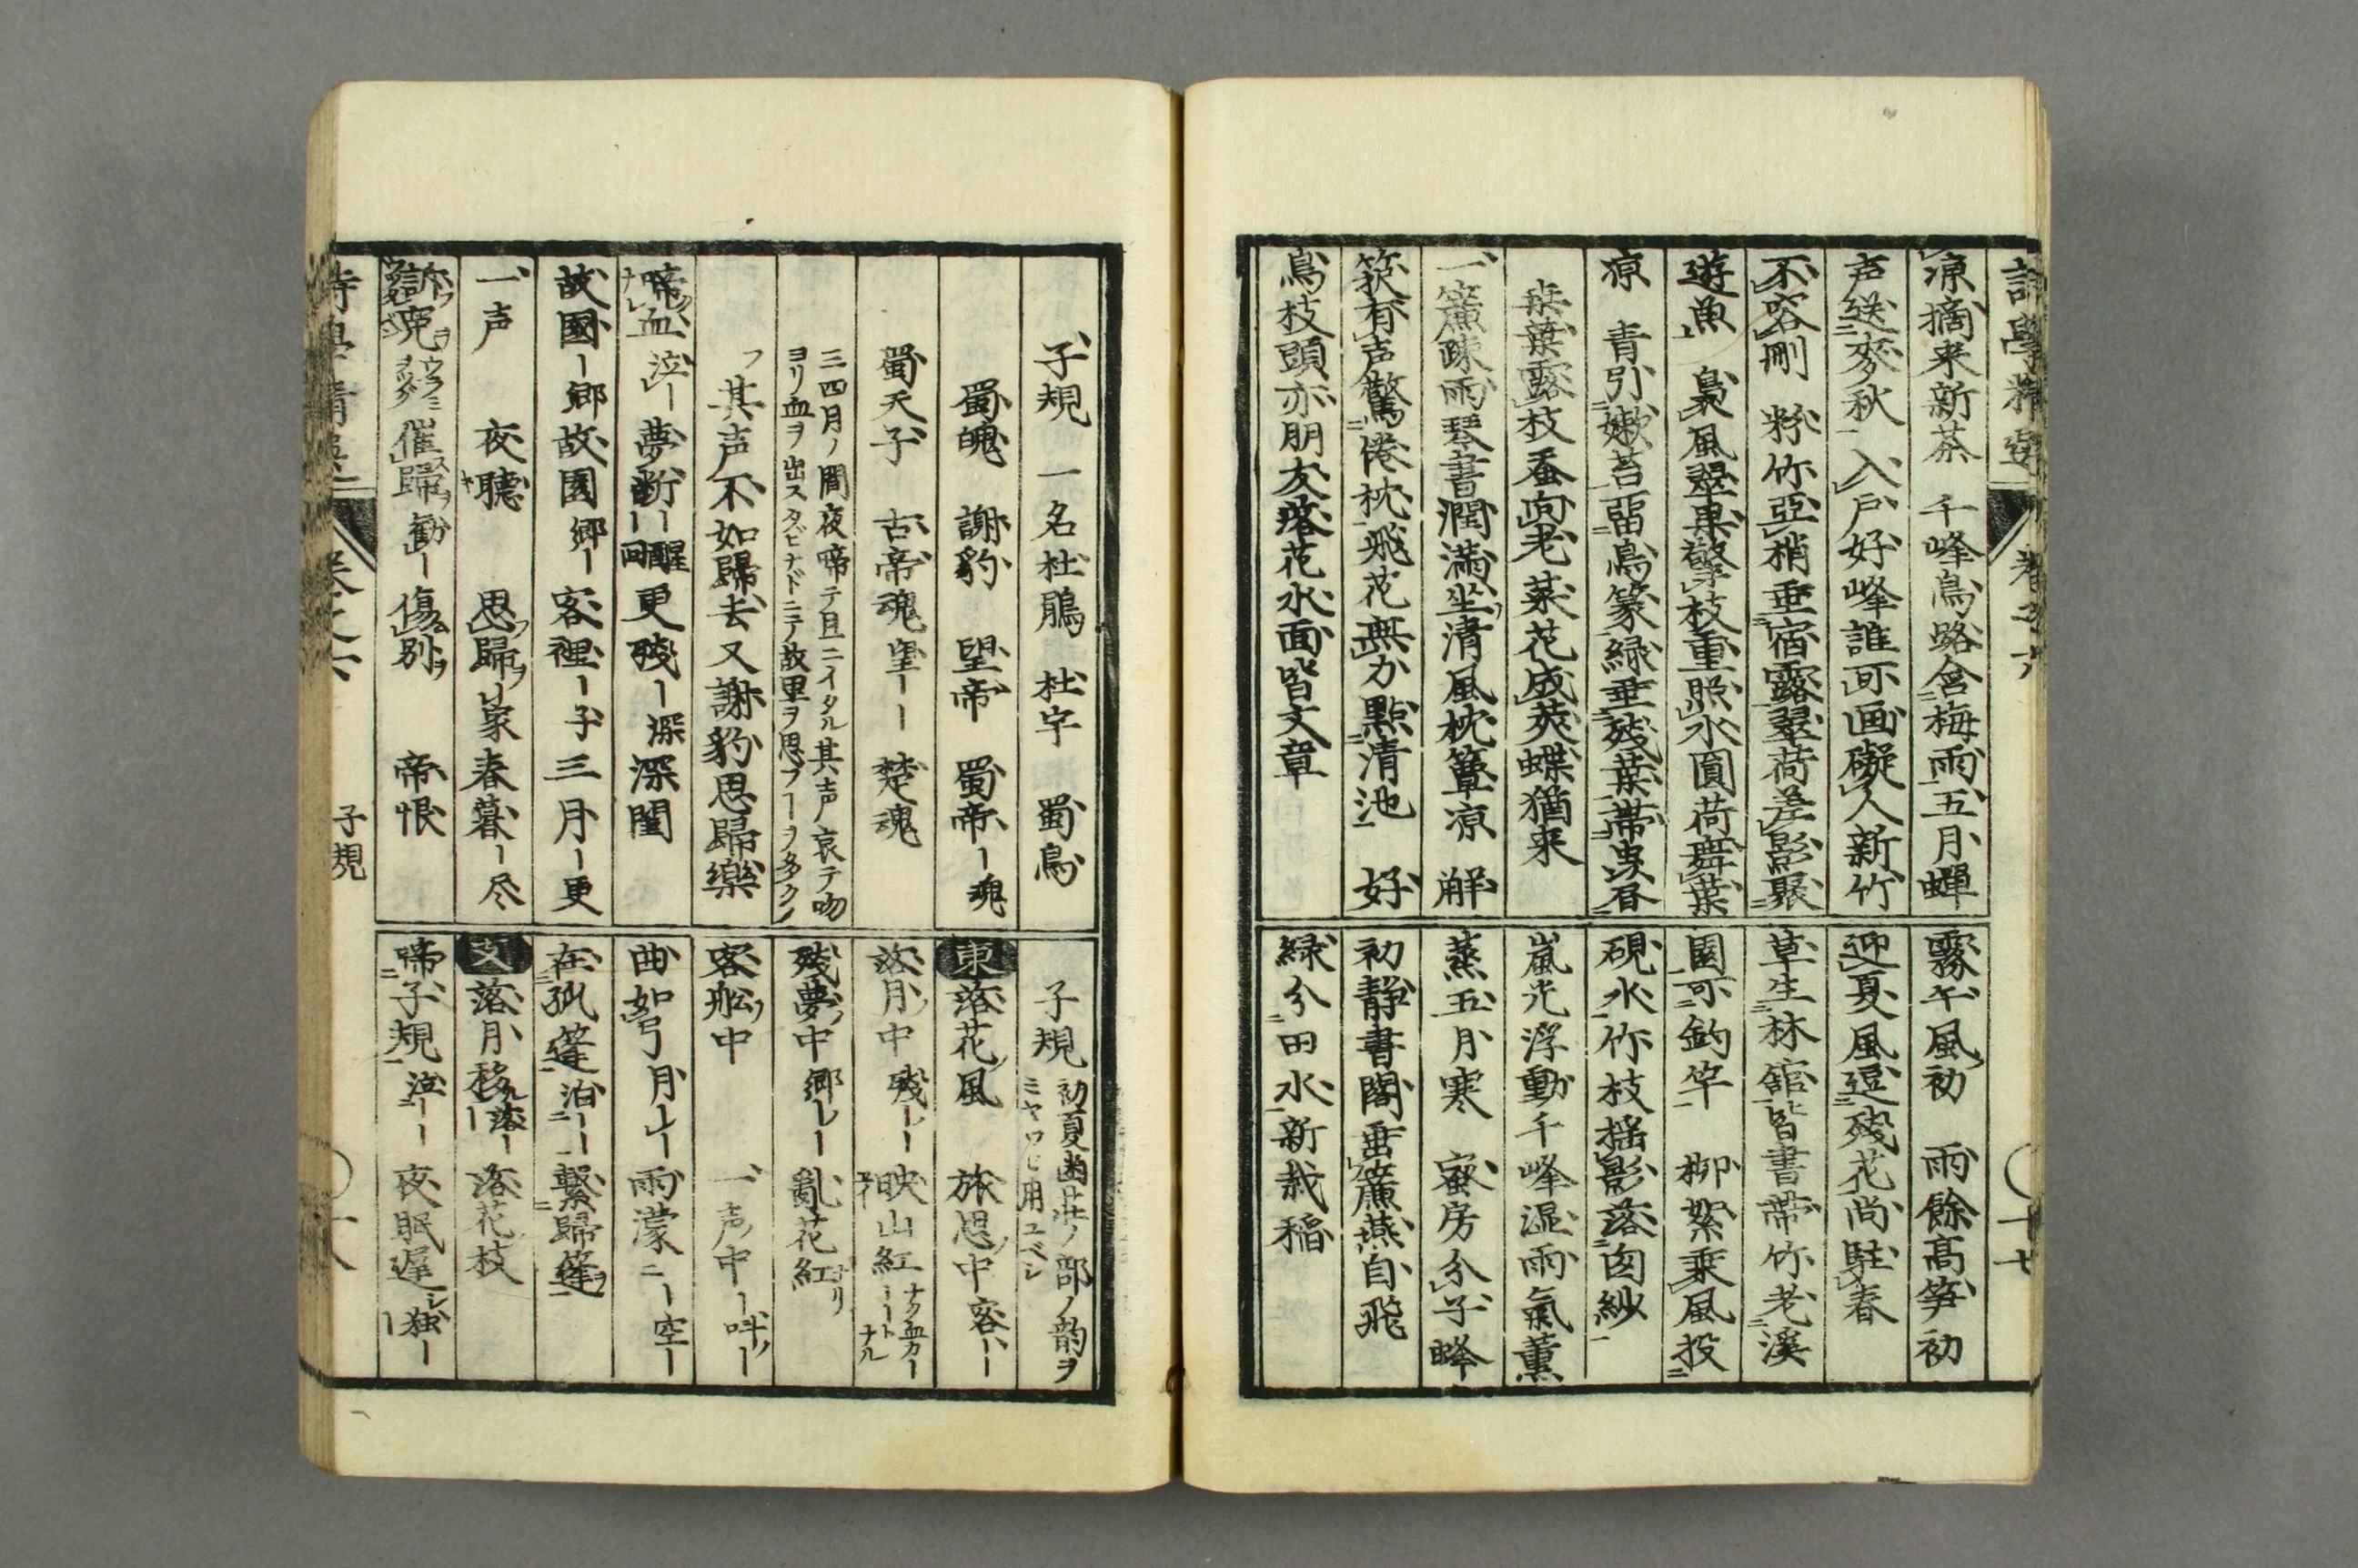 凉摘来新茶　千峰鳥路含梅雨五月蟬
声送麥秋　入戸好峰誰可画礙人新竹
不容刪　粉竹亞梢垂宿露翠荷差影聚
遊魚　裊風翠果擎枝重照水圓荷舞葉
凉　青引嫩苔留鳥篆緑垂残葉帯虫書
桒葉露枝蚕向老菜花成莢蝶猶来
一簾疎雨琴書潤満坐清風枕簟凉　解
籜有声驚倦枕飛花無力點清池　好
鳥枝頭亦朋友落花水面皆文章
霧午風初　雨餘髙笋初
迎夏風逗残花尚駐春
草生林舘皆書帯竹老溪
園可釣竿　柳絮乗風投
硯水竹枝揺影落囱紗
嵐光浮動千峰湿雨氣薫
蒸五月寒　蜜房分子蜂
初静書閣垂簾燕自飛
緑分田水新栽稲
子規　一名杜鵑　杜宇　蜀鳥
蜀魄　謝豹　望帝　蜀帝ー魂
蜀天子　古帝魂望ーー　楚魂
三四月ノ間夜啼テ旦ニイタル其声哀テ吻
ヨリ血ヲ出スタビナドニテ故里ヲ思フーヲ多クノ
フ其声不如歸去又謝豹思歸樂
啼血泣ー　夢断ー醒ー回　更残ー深　深閨
故國ー郷故園郷ー　客裡ー子三月ー更
一声　夜聴　思歸ー家春暮ー尽
訴寃　催歸勧ー　傷別　帝恨
子規
子規　初夏幽荘ノ部ノ韵ヲ
ミヤワヒ用ユベシ
東　落花風　旅思中客ー
落月中残ーー　映山紅
残夢中郷レー　亂花紅
客舩中　一声中ー呌ー
曲如弓月ー　雨濛ニー空ー
在孤篷泊ーー　繋歸篷
支　落月移落ー　落花枝
啼子規泣ーー　夜眠遅独ー